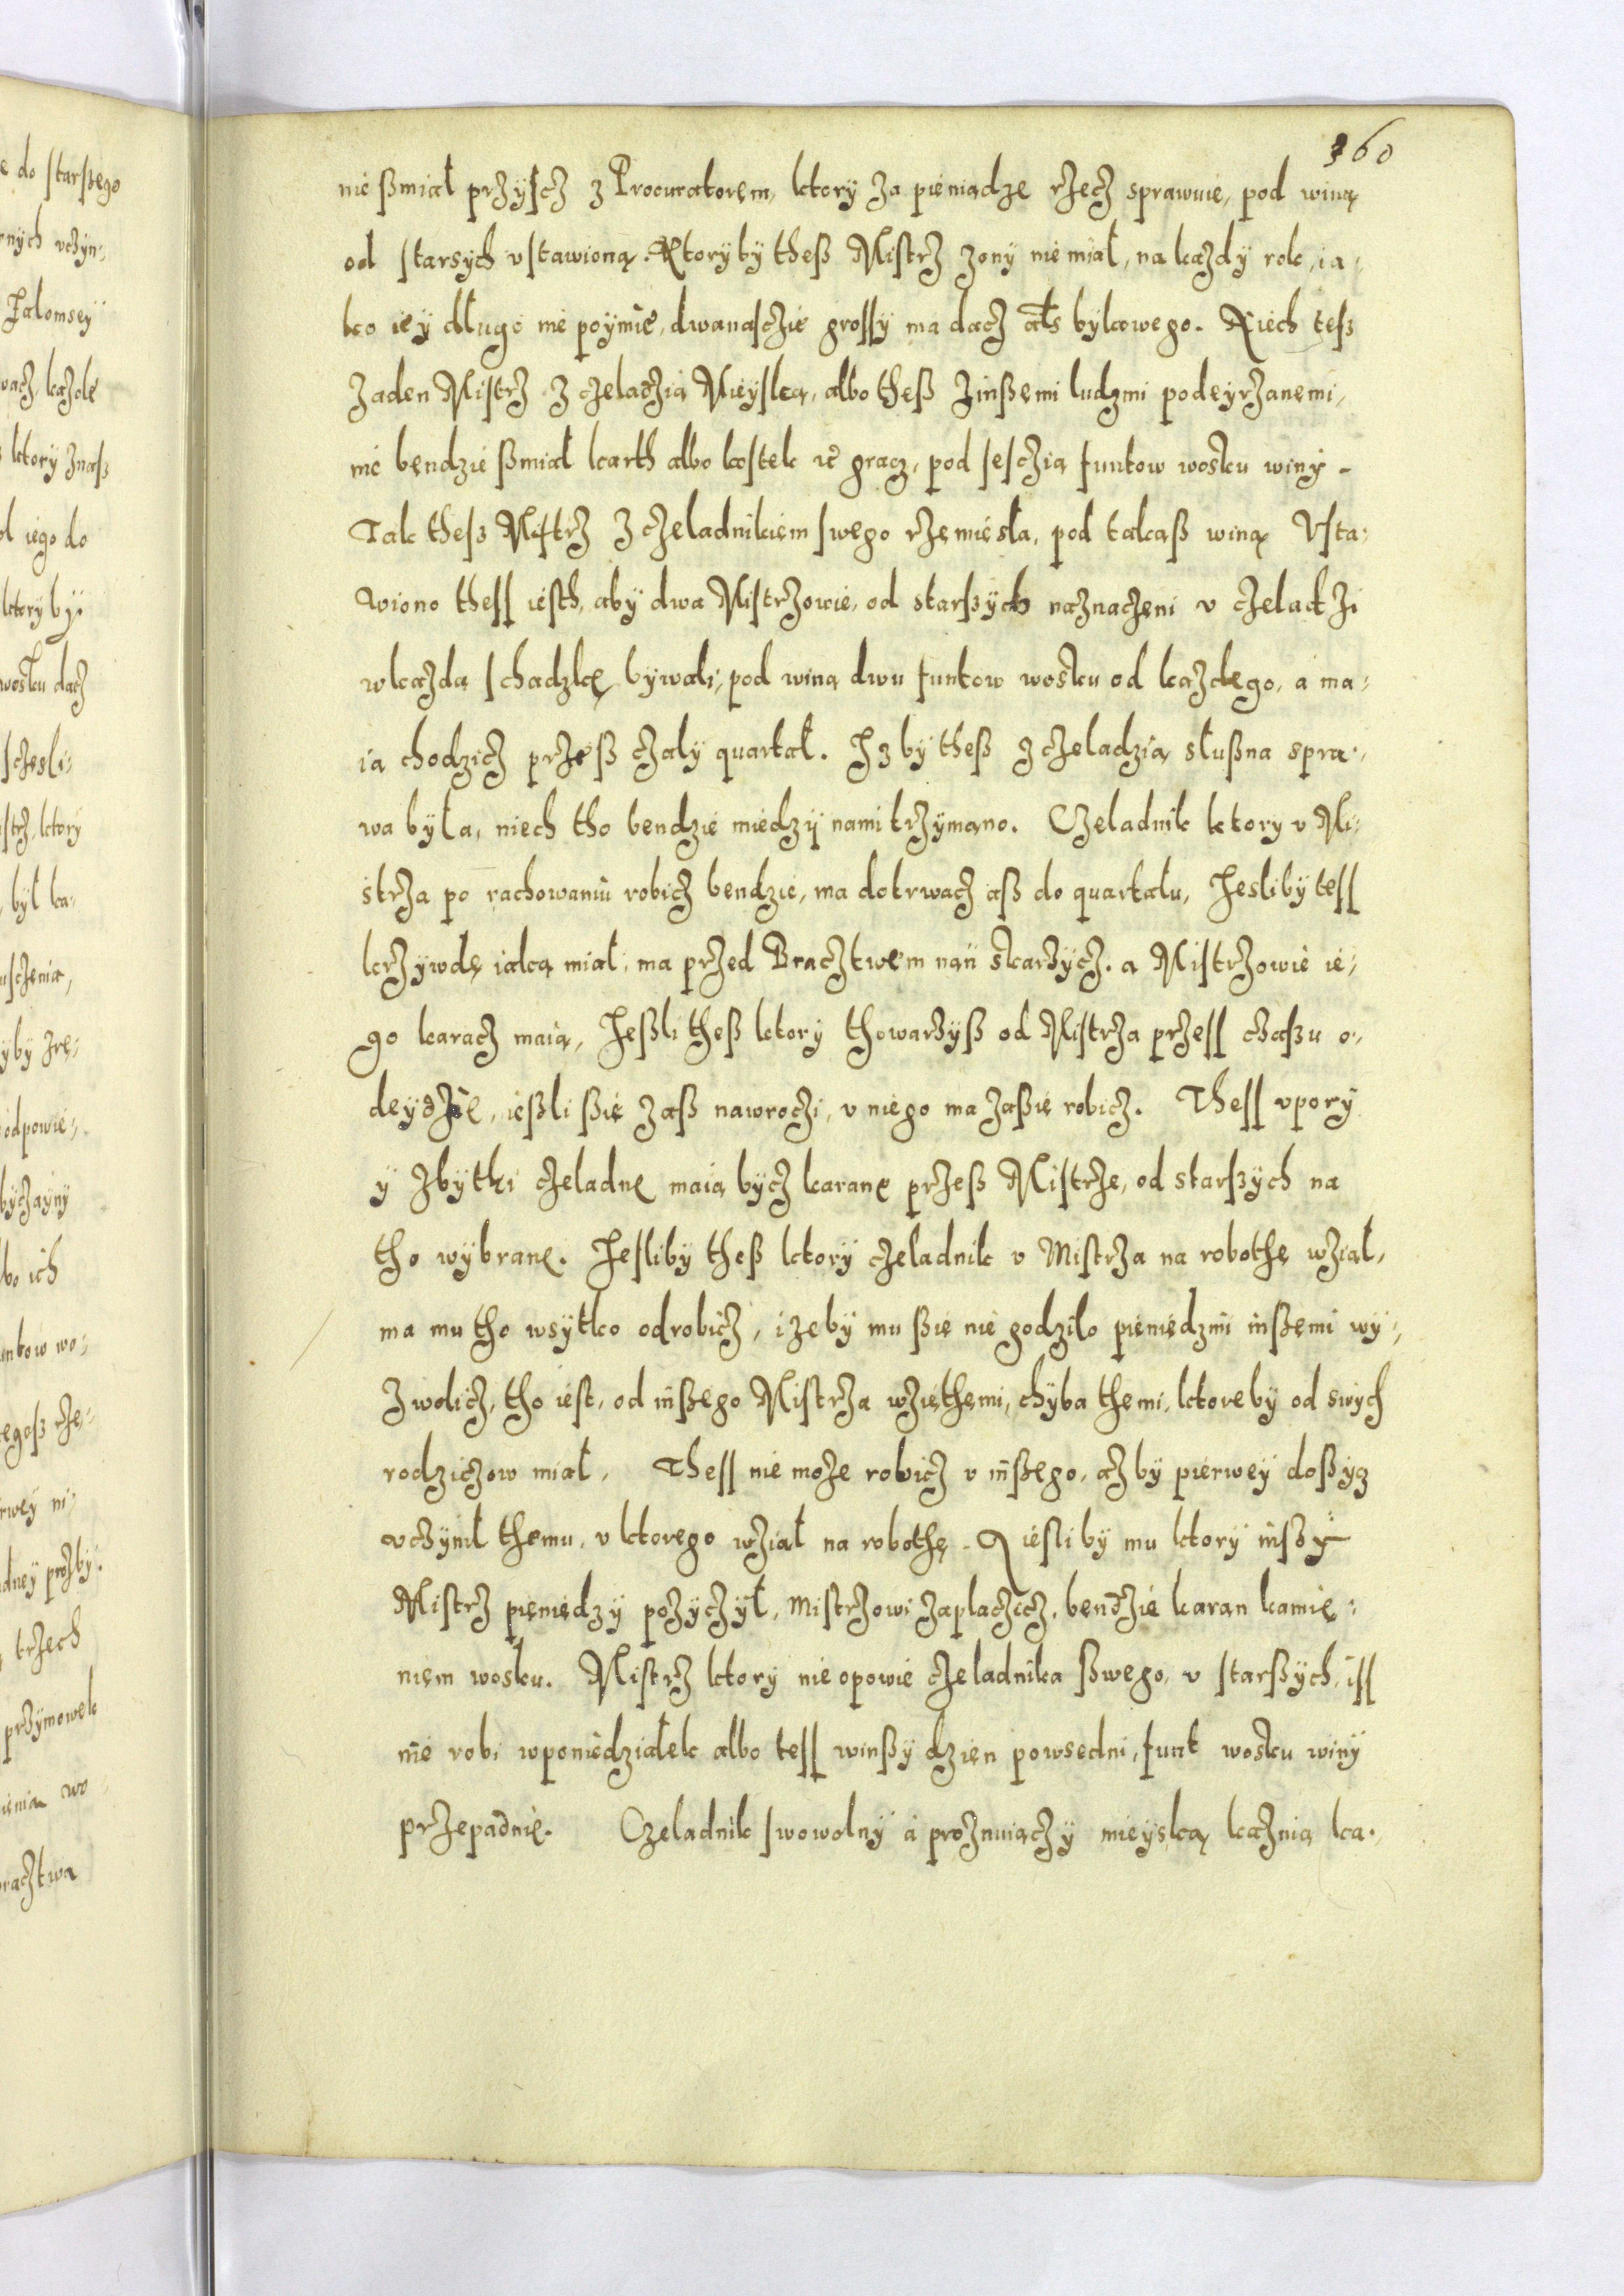 360
nie ßmiał przyscz z Procuratorem, ktory za pieniądze rzecz sprawuie, pod winą
od starsych vstawioną. Ktory by theß Mistrz zony nie miał, na kazdy rok, ia-
ko iey długo nie poymie, dwanasczie grossy ma dacz als bykowego. Niech tesz
zaden Mistrz z czeladzią Mieyską, albo theß zinßemi ludzmi podeyrzanemi,
nie bendzie ßmiał karth albo kostek gracz, pod sesczią funtow wosku winy.
Tak thesz Mistrz z czeladnikiem swego rzemiesla, pod takaß winą Vsta-
wiono thess iesth, aby dwa Mistrzowie, od starßych naznaczeni v czeladzi
wkazda schadzkę bywali, pod winą dwu funtow wosku od kazdego, a ma-
ia chodzicz przeß czały quartał. Iz by theß z czeladzią słußna spra-
wa była, niech tho bendzie miedzy nami trzymano. Czeladnik ktory v Mi-
strza po rachowaniu robicz bendzie, ma dotrwacz aß do quartału, Iesliby tess
krzywdę iaką miał, ma przed Bractwem nań skarzycz. a Mistrzowie ie-
go karacz maią, Ießli theß ktory thowarzyß od Mistrza przess czaßu o-
deydzie, ießli ßie zaß nawroczi, v niego ma zaßię robicz. Thess vpory
y zbytki czeladne maią bycz karane przeß Mistrze, od starßych na
tho wybrane. Iesliby theß ktory czeladnik v Mistrza na robothę wział,
ma mu tho wsytko odrobicz, izeby mu ßie nie godziło pieniedzmi inßemi wy-
zwolicz, tho iest, od inßego Mistrza wziethemi, chyba themi, ktoreby od swych
rodziczow miał, Thess nie moze robicz v inßego, azby pierwey doßycz
vczynił themu, v ktorego wział na robothę. A iesli by mu ktory inßy
Mistrz pieniedzy pozyczył, Mistrzowi zaplaczicz, bendzie karan kamie-
niem wosku. Mistrz ktory nie opowie czeladnika ßwego, v starßych, iss
nie robi wponiedziałek albo tess winßy dzien powsedni, funt wosku winy
przepadnie. Czeladnik swowolny a proznuiączy mieyską kaznią ka-